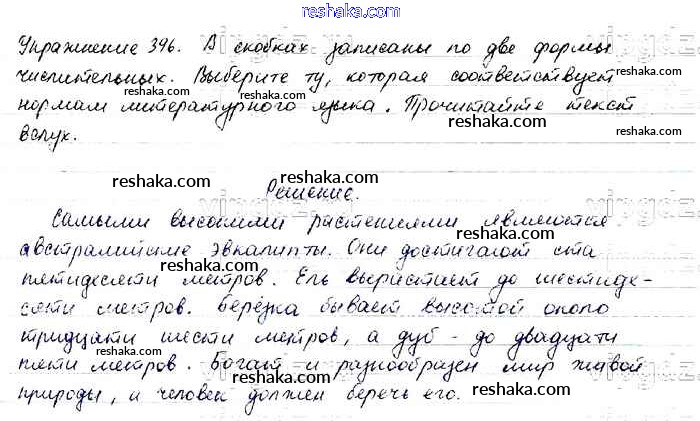 reshaka.com
Упражнение 396. В скобках записаны по две формы
числительных. Выберите ту, которая соответствует
нормам литературного языка. Прочитайте текст
вслух.
reshaka.com
reshaka.com
reshaka.com
reshaka.com
reshaka.com
Решение.
Самыми высокими растениями являются
австралийские эвкалипты. Они достигают ста
пятидесяти метров. Ель вырастает до шестиде-
сяти метров. Берёзка бывает высотой около
тридцати шести метров, а дуб - до двадцати
пяти метров. Богат и разнообразен мир живой
природы, и человек должен беречь его.
reshaka.com
reshaka.com
reshaka.com
reshaka.com
reshaka.com
reshaka.com
reshaka.com